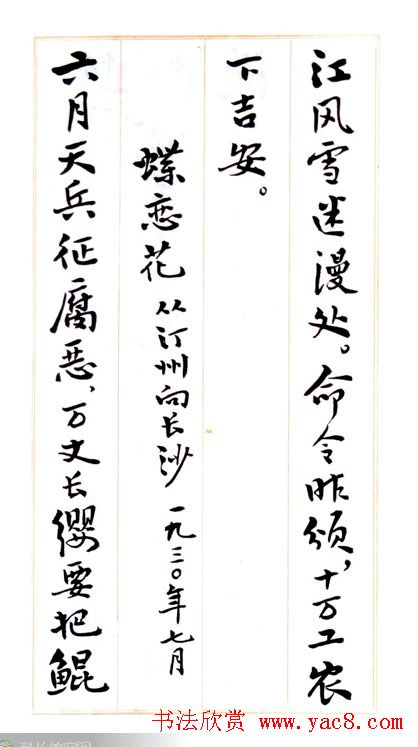 江风雪迷漫处。命令昨颁，十万工农
下吉安。
蝶恋花 从汀州向长沙 一九三〇年七月
六月天兵征腐恶，万丈长缨要把鲲
书法欣赏 www.yac8.com